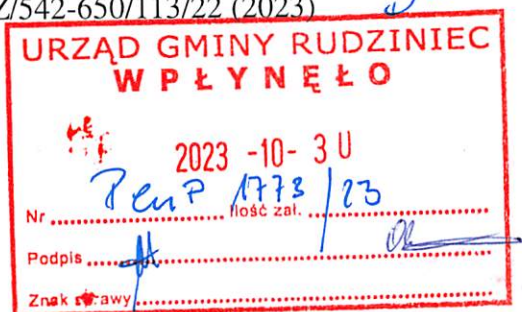 Z/542-650/113/22 (2023)
URZĄD GMINY RUDZINIEC
WPŁYNĘŁO
2023 -10- 3 0
Nr ........ 1773/23 Ilość zał. ........
Podpis ........
Znak sprawy ........